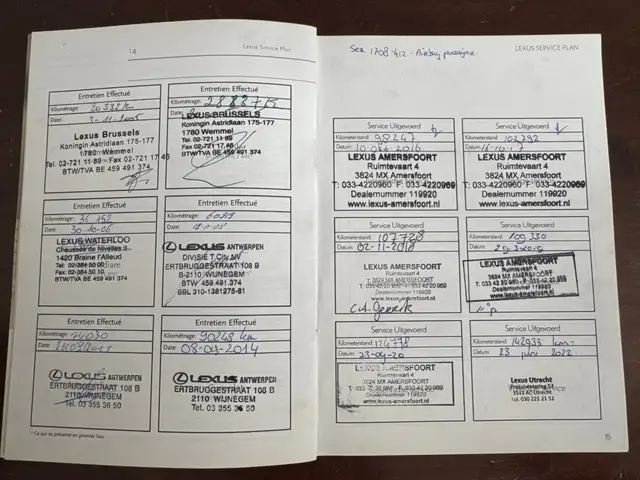 14
Lexus Service Plan
Entretien Effectué
Kilométrage:
Date:
Lexus Brussels
Koningin Astridlaan 175-177
1780 Wemmel
Tel. 02-721 11 89 - Fax 02-721 17 46
BTW/TVA BE 459 491 374
Entretien Effectué
Kilométrage:
Date:
LEXUS BRUSSELS
Koningin Astridlaan 175-177
1780 Wemmel
Tel. 02-721 11 89
Fax 02-721 17 46
BTW/TVA BE 459.491.374
Entretien Effectué
Kilométrage: 36 152
Date: 30-10-06
LEXUS WATERLOO
Chaussée de Nivelles 3
1420 Braine l'Alleud
Tel. 02-384 50 00
Fax 02-384 50 10
Entretien Effectué
Kilométrage:
Date:
LEXUS ANTWERPEN
DIVISIE T.CITY NV
ERTBRUGGESTRAAT 108 B
2110 WIJNEGEM
BTW BE 459.491.374
BBL 310-1381275-81
Entretien Effectué
Kilométrage:
Date:
LEXUS ANTWERPEN
ERTBRUGGESTRAAT 108 B
2110 WIJNEGEM
Tel. 03 355 36 50
Entretien Effectué
Kilométrage: 90248 km
Date: 08-09-2014
LEXUS ANTWERPEN
ERTBRUGGESTRAAT 108 B
2110 WIJNEGEM
Tel. 03 355 36 50
Ce qui se présente en premier lieu.
1708-412 - Airbag passagier
LEXUS SERVICE PLAN
Service Uitgevoerd
Kilometerstand: 98267
Datum: 2016
LEXUS AMERSFOORT
Ruimtevaart 4
3824 MX Amersfoort
T: 033-4220960 F: 033-4220969
Dealernummer 119920
www.lexus-amersfoort.nl
Service Uitgevoerd
Kilometerstand: 102792
Datum: 16-10-17
LEXUS AMERSFOORT
Ruimtevaart 4
3824 MX Amersfoort
T: 033-4220960 F: 033-4220969
Dealernummer 119920
www.lexus-amersfoort.nl
Service Uitgevoerd
Kilometerstand: 107728
Datum: 02-11-2018
LEXUS AMERSFOORT
Ruimtevaart 4
3824 MX AMERSFOORT
Dealernummer 119920
www.lexus-amersfoort.nl
Service Uitgevoerd
Kilometerstand: 109330
Datum:
LEXUS AMERSFOORT
Ruimtevaart 4
3824 MX AMERSFOORT
Dealernummer 119920
www.lexus-amersfoort.nl
Service Uitgevoerd
Kilometerstand: 124778
Datum: 23-09-20
LEXUS AMERSFOORT
Ruimtevaart 4
3824 MX AMERSFOORT
Dealernummer 119920
www.lexus-amersfoort.nl
Service Uitgevoerd
Kilometerstand: 142933 km
Datum: 23 juni 2022
Lexus Utrecht
3543 XC Utrecht
tel. 030 221 21 51
15